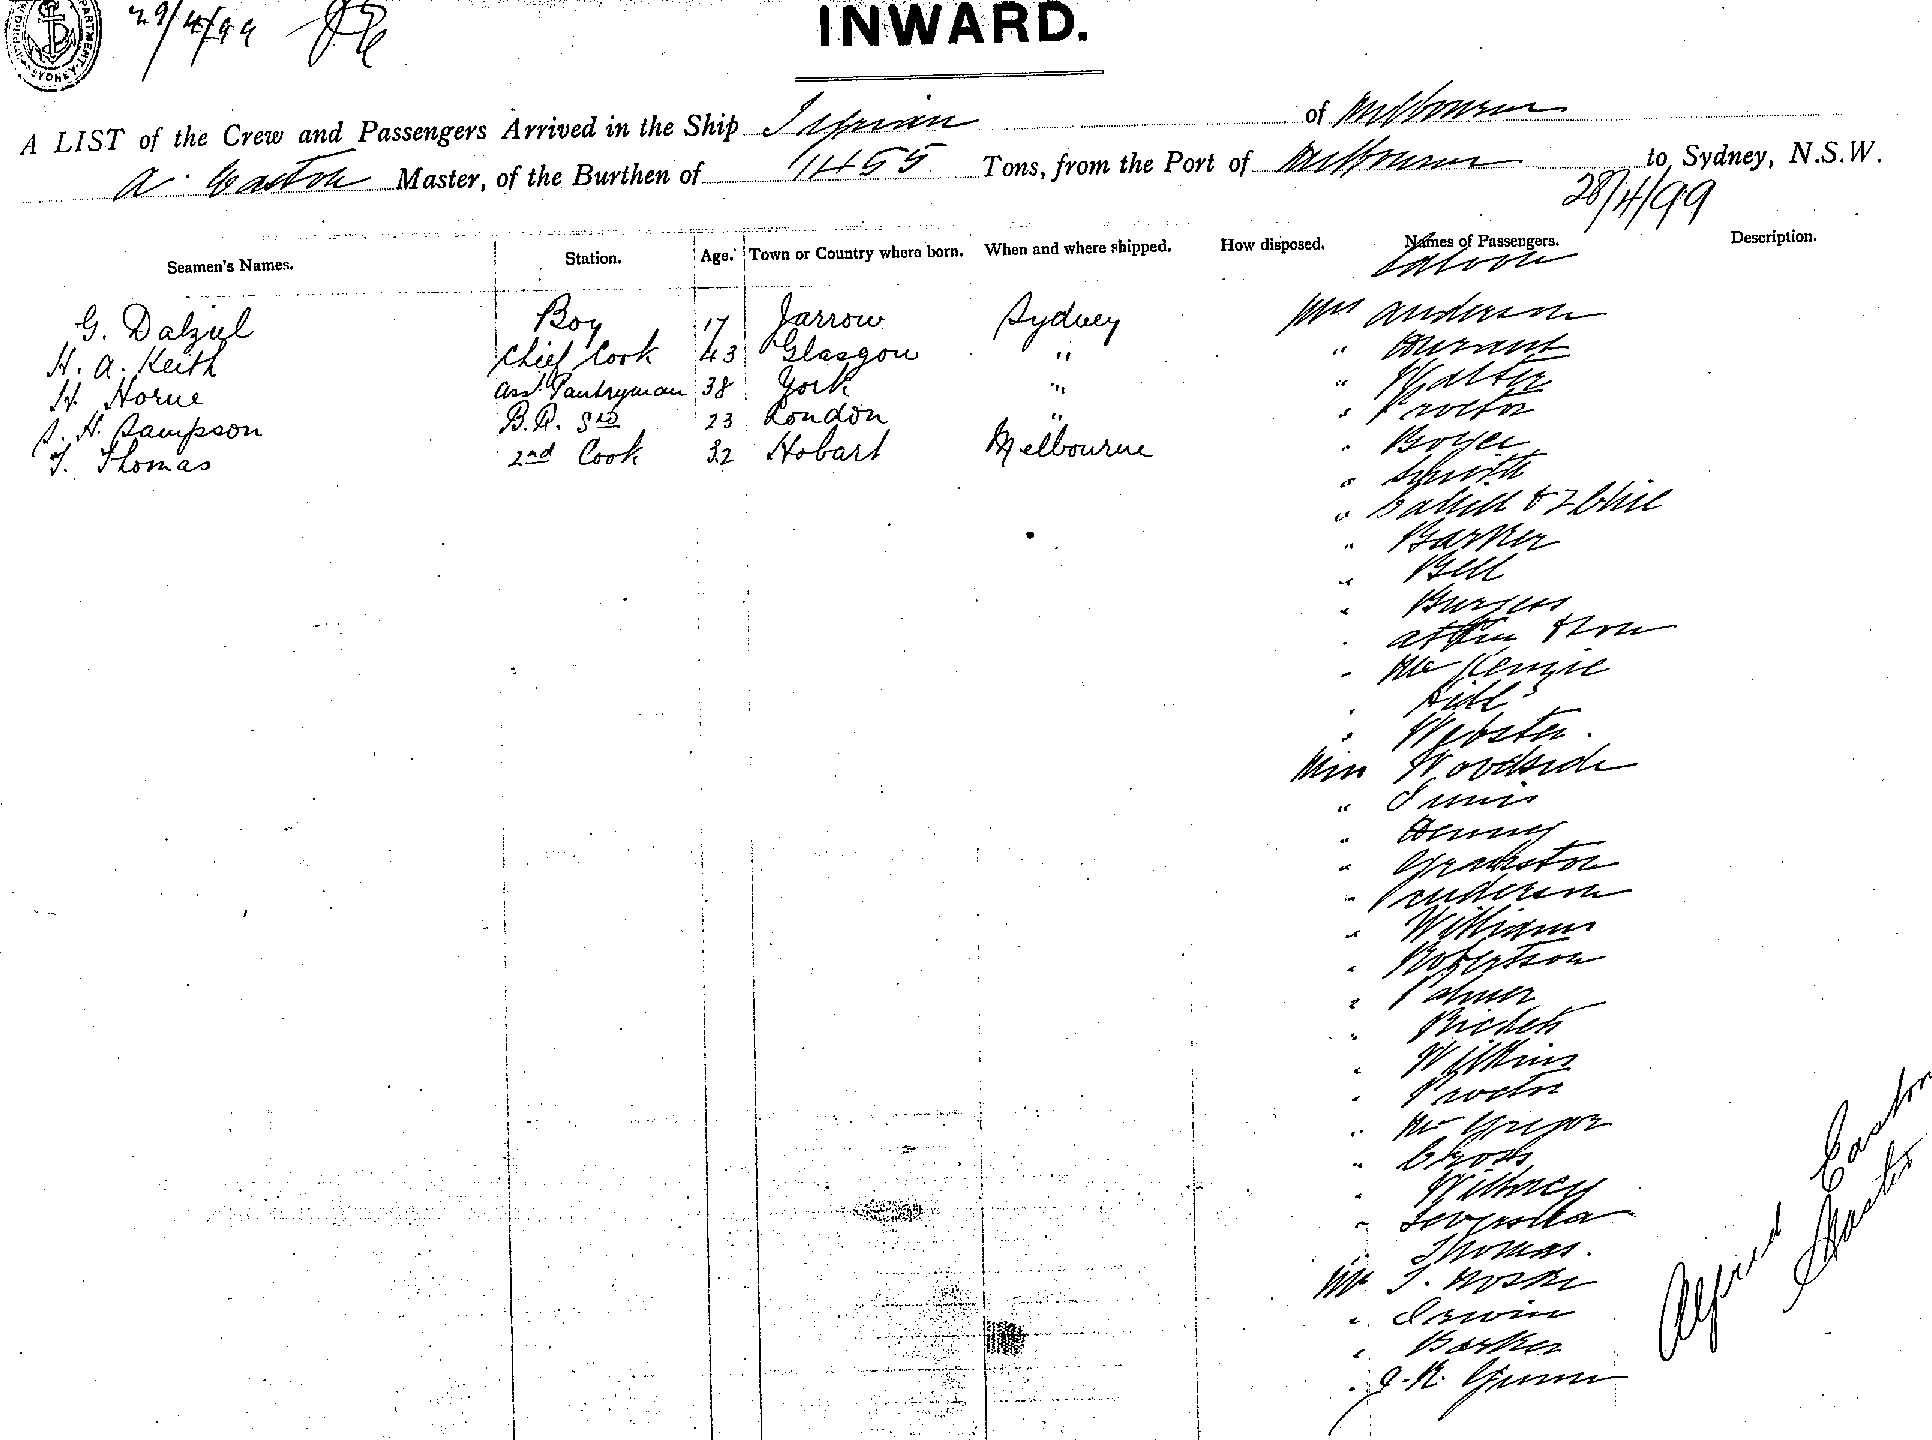 29/4/99
INWARD.
A LIST of the Crew and Passengers Arrived in the Ship Tyrian of Melbourne
A. Easton Master, of the Burthen of 1455 Tons, from the Port of Melbourne to Sydney, N.S.W.
28/4/99
Seamen's Names. Station. Age. Town or Country where born. When and where shipped. How disposed. Names of Passengers. Description.
Saloon
G. Dalziel Boy 17 Jarrow Sydney Mrs Anderson
H. A. Keith Chief Cook 43 Glasgow " " Durant
H. Horne Asst Pantryman 38 York " " Walter
S. H. Sampson B.R. Std 23 London " " Proctor
T. Thomas 2nd Cook 32 Hobart Melbourne " Boyce
" Smith
" Cahill & 2 Chil
" Barker
" Bell
" Burgess
" & Son
" McKenzie
" Hill
" Webster.
Miss Woodside
" Innis
" Denny
"
" Anderson
" Williams
" Robertson
" Palmer
"
" Wilkins
" Proctor
" McGregor
" Cross
"
"
" Thomas.
Mr T.
" Irwin
" Barker
" J. R. Gunn
Alfred Easton
Master